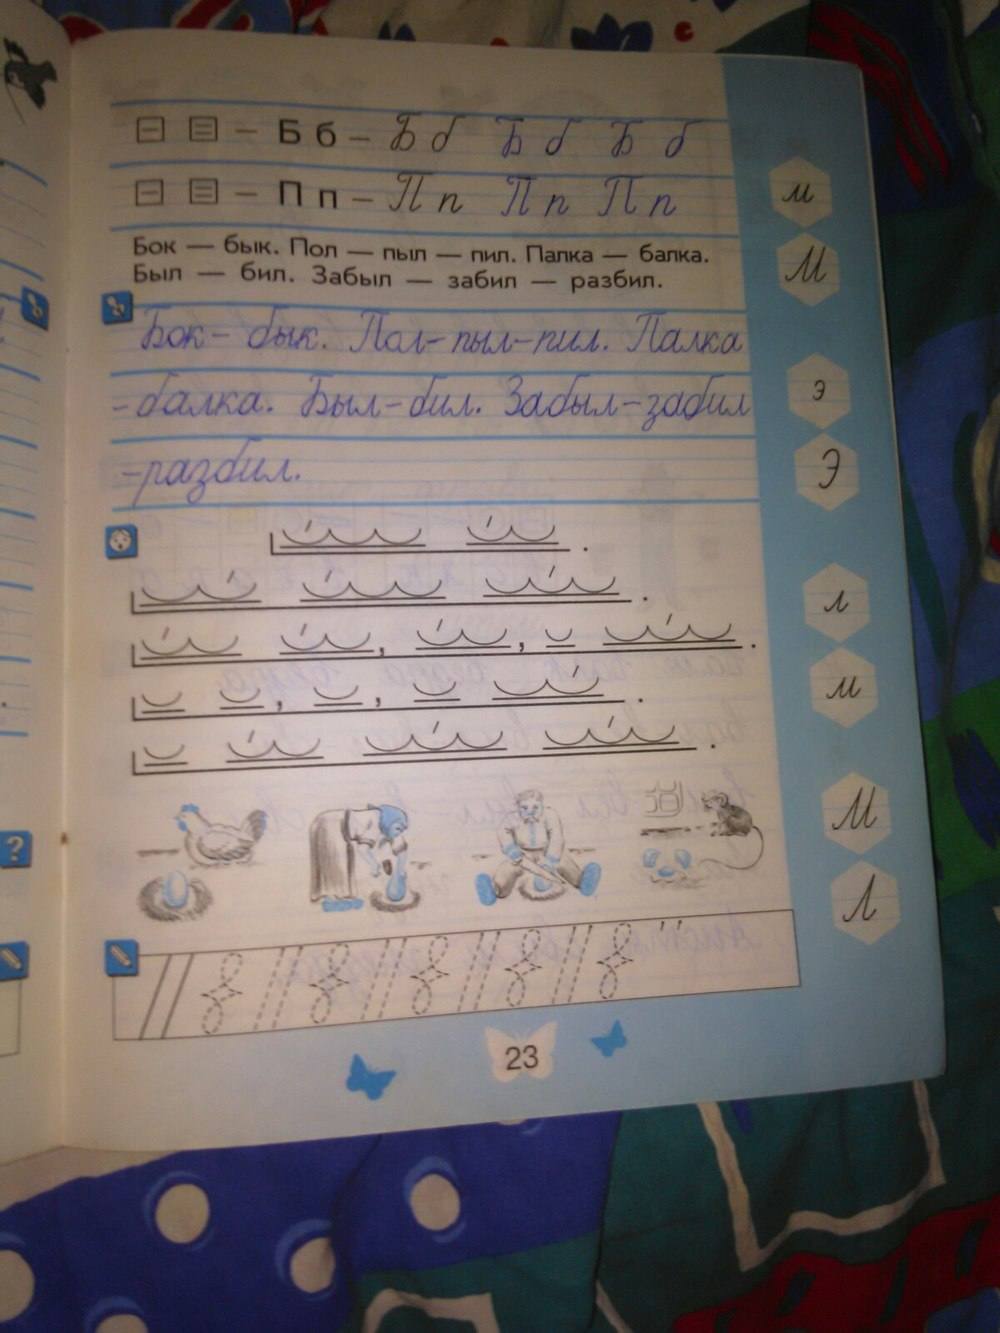 Б б – Б б Б б Б б
П п – П п П п П п
Бок — бык. Пол — пыл — пил. Палка — балка.
Был — бил. Забыл — забил — разбил.
Бок – бык. Пол – пыл – пил. Палка
– балка. Был – бил. Забыл – забил
– разбил.
м
М
э
Э
л
м
М
Л
?
23